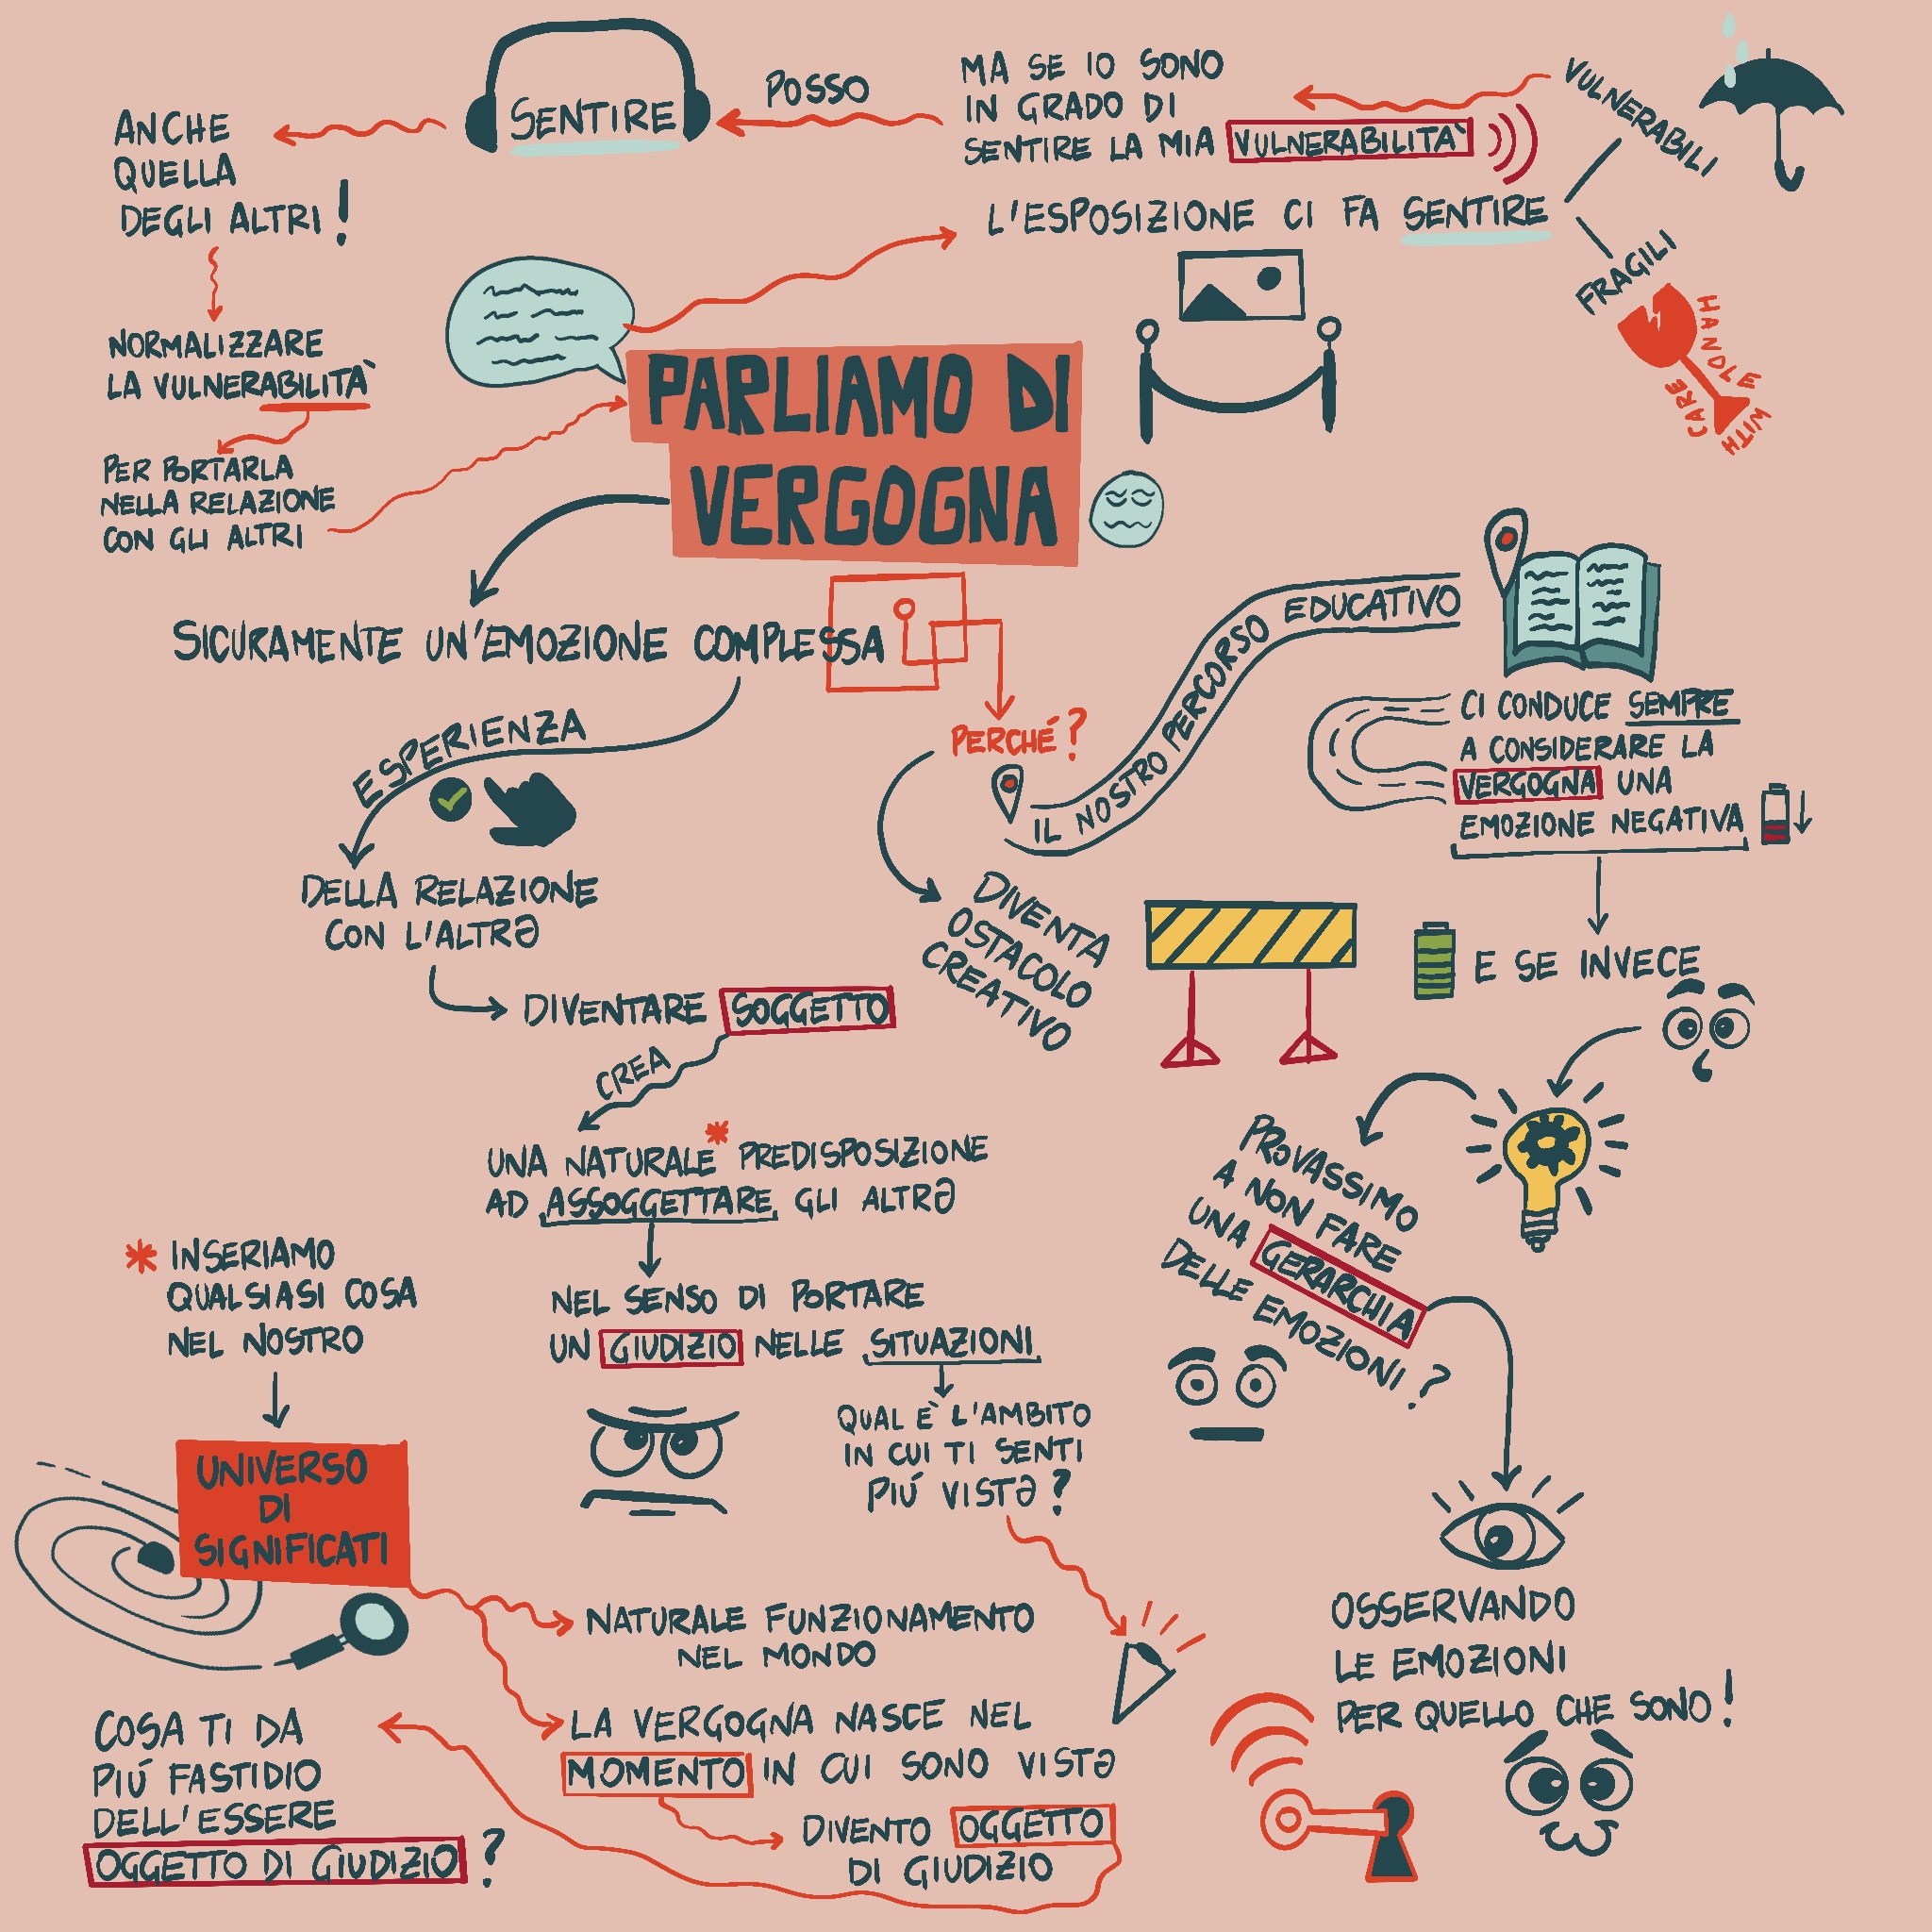 PARLIAMO DI
VERGOGNA
L'ESPOSIZIONE CI FA SENTIRE
VULNERABILI
FRAGILI
HANDLE
WITH
CARE
MA SE IO SONO
IN GRADO DI
SENTIRE LA MIA VULNERABILITA'
POSSO
SENTIRE
ANCHE
QUELLA
DEGLI ALTRI!
NORMALIZZARE
LA VULNERABILITA'
PER PORTARLA
NELLA RELAZIONE
CON GLI ALTRI
SICURAMENTE UN'EMOZIONE COMPLESSA
ESPERIENZA
DELLA RELAZIONE
CON L'ALTRƏ
DIVENTARE SOGGETTO
CREA
UNA NATURALE* PREDISPOSIZIONE
AD ASSOGGETTARE GLI ALTRƏ
NEL SENSO DI PORTARE
UN GIUDIZIO NELLE SITUAZIONI
QUAL E' L'AMBITO
IN CUI TI SENTI
PIÚ VISTƏ?
* INSERIAMO
QUALSIASI COSA
NEL NOSTRO
UNIVERSO
DI
SIGNIFICATI
NATURALE FUNZIONAMENTO
NEL MONDO
LA VERGOGNA NASCE NEL
MOMENTO IN CUI SONO VISTƏ
DIVENTO OGGETTO
DI GIUDIZIO
COSA TI DA
PIÚ FASTIDIO
DELL'ESSERE
OGGETTO DI GIUDIZIO?
PERCHÉ?
DIVENTA
OSTACOLO
CREATIVO
IL NOSTRO PERCORSO EDUCATIVO
CI CONDUCE SEMPRE
A CONSIDERARE LA
VERGOGNA UNA
EMOZIONE NEGATIVA
E SE INVECE
PROVASSIMO
A NON FARE
UNA GERARCHIA
DELLE EMOZIONI?
OSSERVANDO
LE EMOZIONI
PER QUELLO CHE SONO!